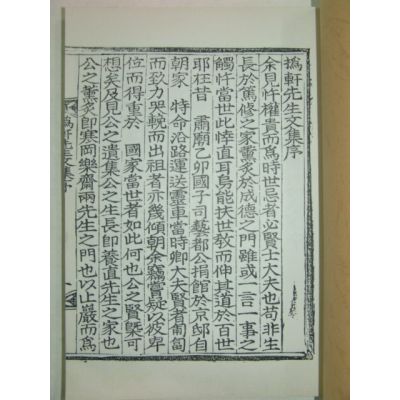 撝軒先生文集序
余見忤權貴而爲時世忌者必賢士大夫也苟非生
長於篤修之家薰炙於成德之門雖或一言一事之
觸忤當世此悻直耳烏能扶世敎而伸其道於百世
耶徃昔 肅廟乙卯國子司藝都公捐館於京邸自
朝家 特命沿路運送靈車當時卿大夫賢者匍匐
而致力哭輓而出祖者亦幾傾朝余竊嘗疑以彼卑
位而得重於 國家當世者如此何也公之賢槩可
想矣及見公之遺集公之生長卽養直先生之家也
公之薰炙卽寒岡樂齋兩先生之門也以止嚴而爲
撝軒先生文集序